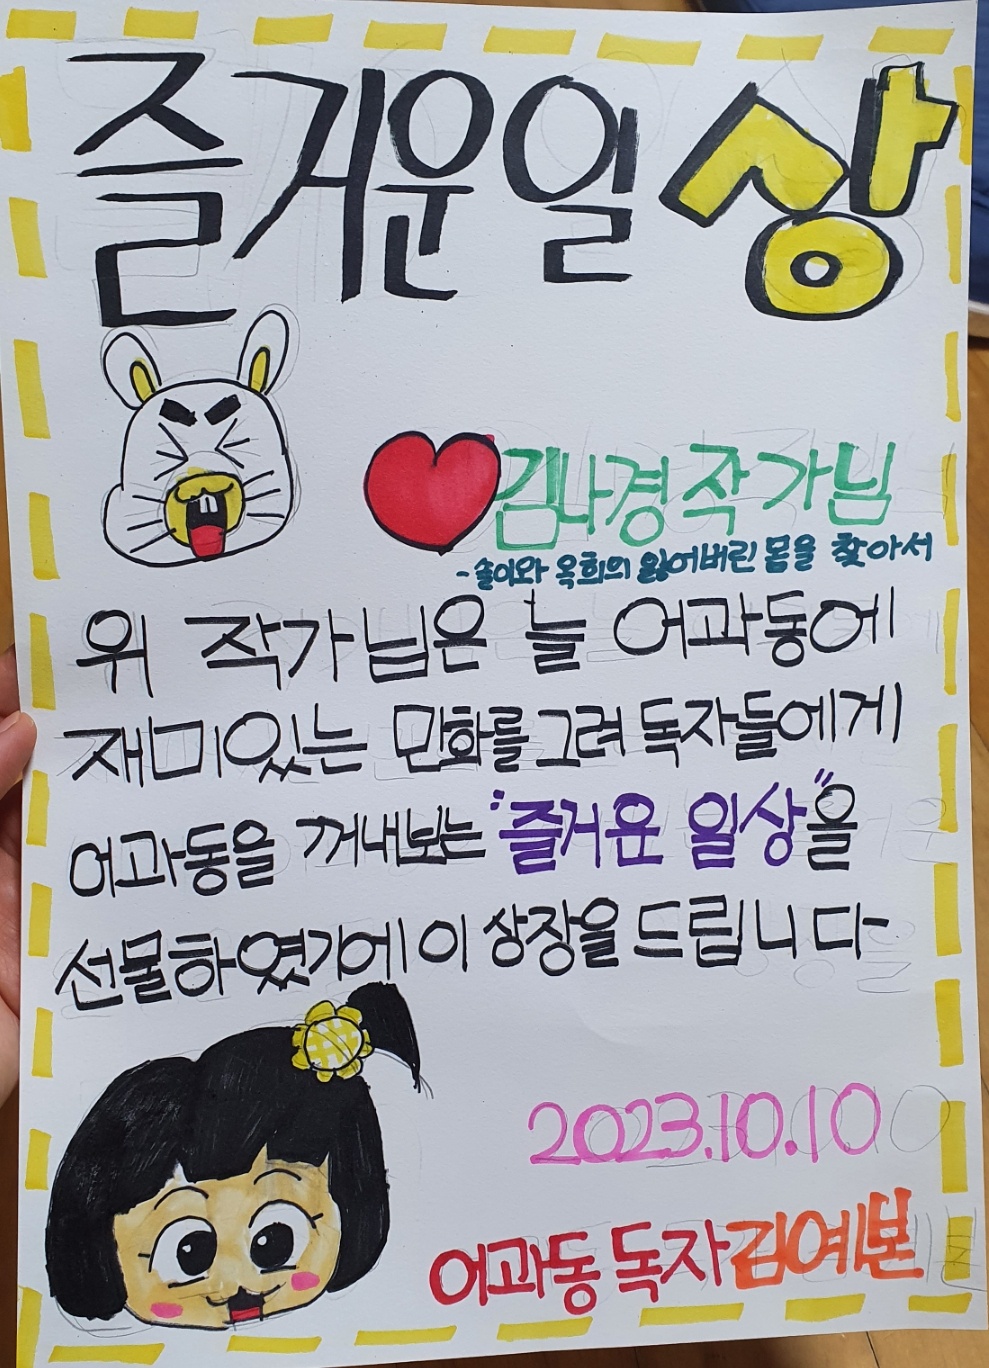 즐거운 일상
김나경 작가님
- 솔이와 옥희의 잃어버린 몸을 찾아서
위 작가님은 늘 어과동에
재미있는 만화를 그려 독자들에게
어과동을 꺼내보는 "즐거운 일상"을
선물하였기에 이 상장을 드립니다
2023.10.10
어과동 독자 김예본